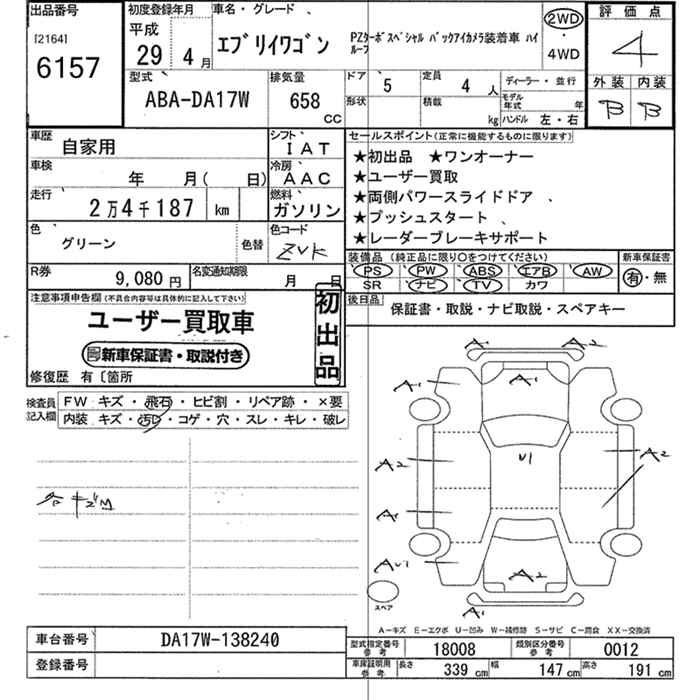 出品番号
[2164]
6157
初度登録年月
平成
29年 4月
車名・グレード
エブリイワゴン
PZターボスペシャル バックアイカメラ装着車 ハイルーフ
2WD
・
4WD
評価点
4
外装 内装
B B
型式
ABA-DA17W
排気量
658
CC
ドア
5
定員
4人
形状
積載
kg
ディーラー・並行
モデル年式
年
ハンドル 左・右
車歴
自家用
シフト
IAT
車検
年 月( 日)
冷房
AAC
走行
2万4千187 km
燃料
ガソリン
色
グリーン
色替
色コード
ZVK
R券
9,080円
名変通知期限
月 日
セールスポイント(正常に機能するものに限ります)
★初出品 ★ワンオーナー
★ユーザー買取
★両側パワースライドドア
★プッシュスタート
★レーダーブレーキサポート
装備品 (純正品に限り○をつけてください)
PS PW ABS エアB AW
SR ナビ TV カワ
新車保証書
有・無
後日品
保証書・取説・ナビ取説・スペアキー
注意事項申告欄(不具合内容等は具体的に記入して下さい)
ユーザー買取車
新車保証書・取説付き
初出品
修復歴 有〔箇所
検査員記入欄
FW キズ・飛石・ヒビ割・リペア跡・×要
内装 キズ・汚レ・コゲ・穴・スレ・キレ・破レ
各キズ
A1 A2
A1 A1 A1
A2 U1 A2
A1
AU1 A2
A1
スペア
A-キズ E-エクボ U-凹み W-補修跡 S-サビ C-腐食 XX-交換済
車台番号
DA17W-138240
登録番号
型式指定番号 参考
18008
類別区分番号 参考
0012
車庫証明用 参考
長さ
339 cm
幅
147 cm
高さ
191 cm